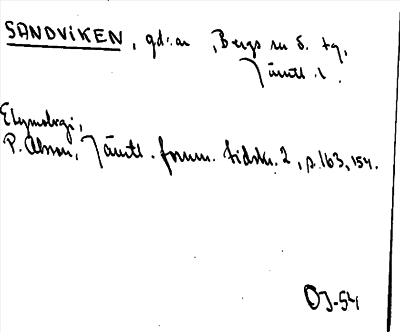 SANDVIKEN, gd:ar, Bergs sn S. tg,
Jämtl. l.
Etymologi,
P. Olsson, Jämtl. fornm. tidskr. 2, p. 163, 154.
OJ-54